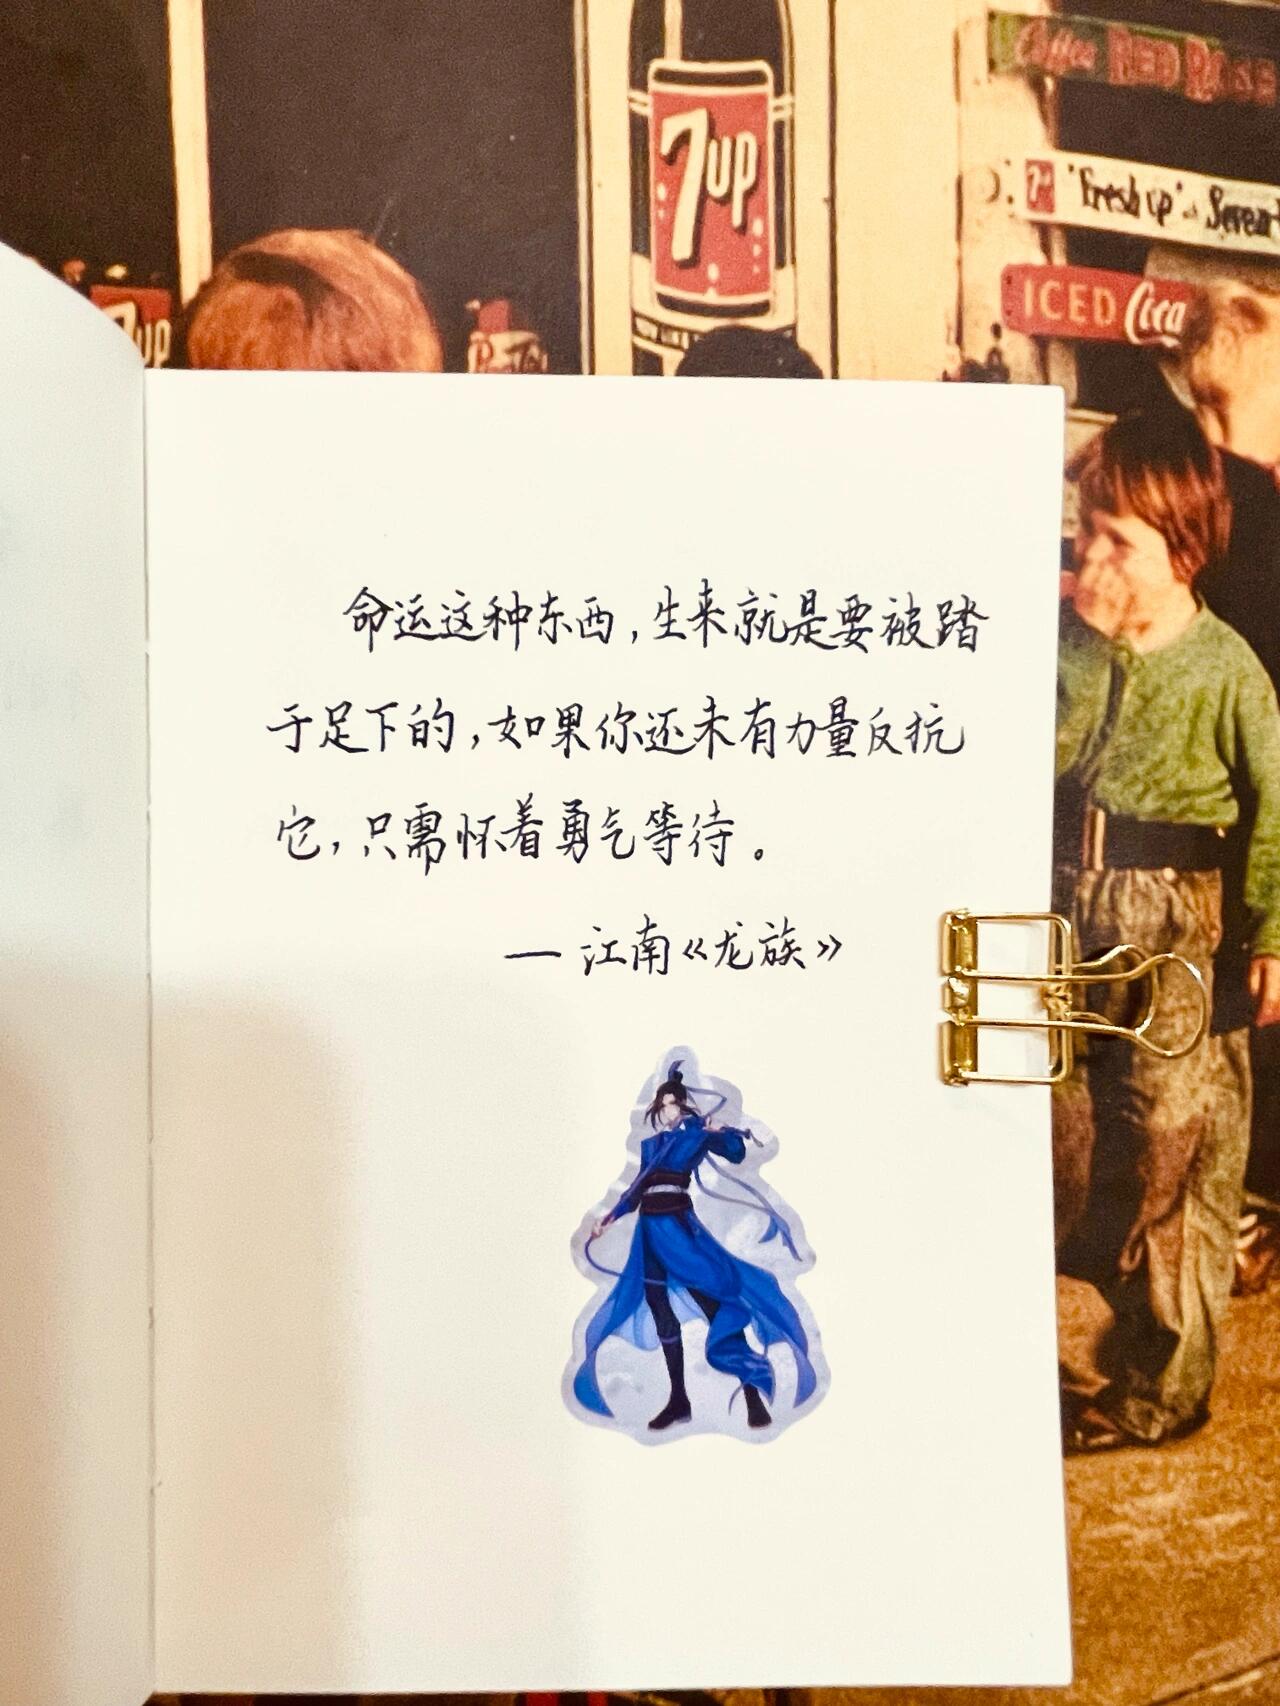 Coffee RED ROSE
7up
"Fresh up"
ICED Coca
7up
命运这种东西,生来就是要被踏
于足下的,如果你还未有力量反抗
它,只需怀着勇气等待。
— 江南《龙族》